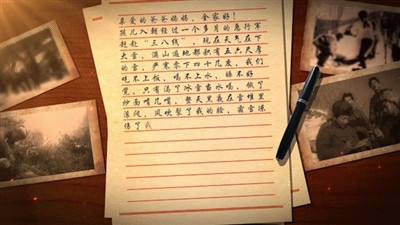 亲爱的爸爸妈妈，全家好！
孩儿入朝经过一个多月的急行军
赶赴“三八线”，现在天天在下
大雪，满山遍地都积有五六尺厚
的雪，严寒零下四十几度，我们
吃不上饭，喝不上水，睡不好
觉，只有渴了冰雪当水喝，饿了
炒面啃几嘴，整天里裹在雪堆里
滚爬，风吹裂了我的脸，霜雪冻
伤了我